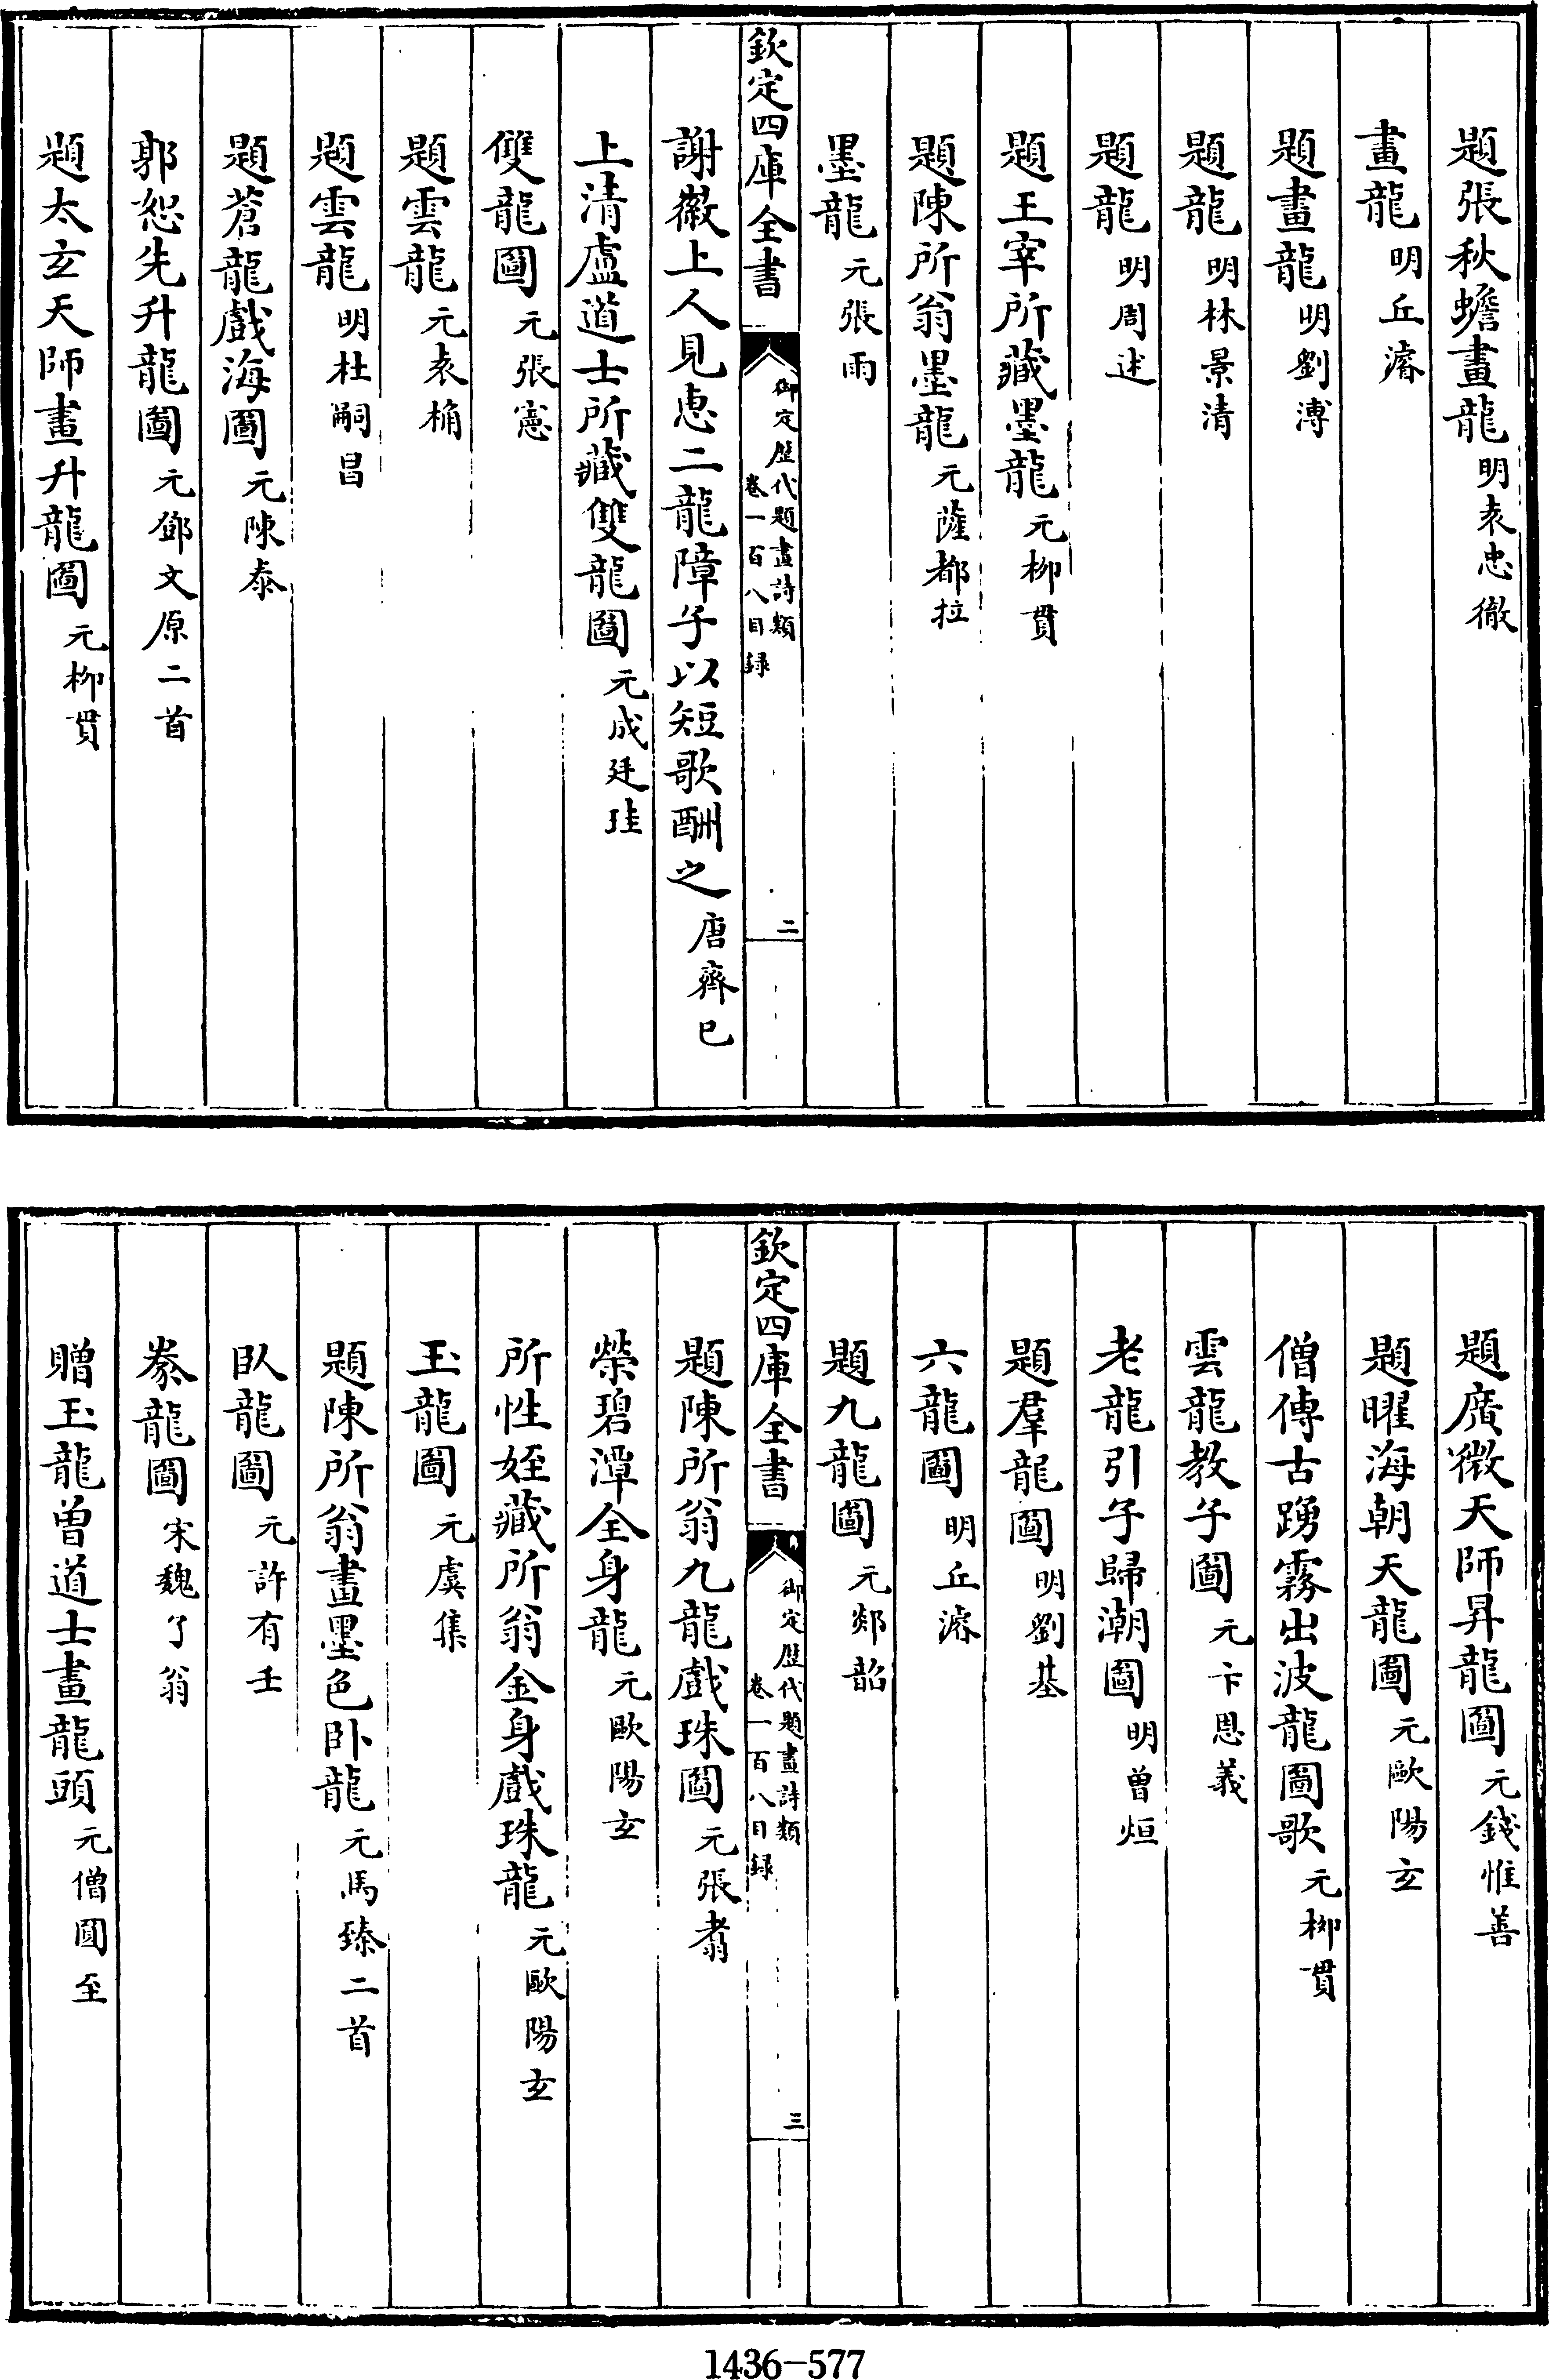 題張秋蟾畫龍 明袁忠徹
畫龍 明丘濬
題畫龍 明劉溥
題龍 明林景清
題龍 明周述
題王宰所藏墨龍 元柳貫
題陳所翁墨龍 元薩都拉
墨龍 元張雨
欽定四庫全書 御定歷代題畫詩類 卷一百八目録 二
謝徽上人見惠二龍障子以短歌酬之 唐齊已
上清盧道士所藏雙龍圖 元成廷珪
雙龍圖 元張憲
題雲龍 元袁桷
題雲龍 明杜嗣昌
題蒼龍戲海圖 元陳泰
郭恕先升龍圖 元鄧文原二首
題太玄天師畫升龍圖 元柳貫
題廣微天師昇龍圖 元錢惟善
題曜海朝天龍圖 元歐陽玄
僧傳古踴霧出波龍圖歌 元柳貫
雲龍教子圖 元卞思義
老龍引子歸潮圖 明曾烜
題羣龍圖 明劉基
六龍圖 明丘濬
題九龍圖 元郯韶
欽定四庫全書 御定歷代題畫詩類 卷一百八目録 三
題陳所翁九龍戲珠圖 元張翥
榮碧潭全身龍 元歐陽玄
所性姪藏所翁金身戲珠龍 元歐陽玄
玉龍圖 元虞集
題陳所翁畫墨色卧龍 元馬臻二首
臥龍圖 元許有壬
豢龍圖 宋魏了翁
贈玉龍曾道士畫龍頭 元僧圓至
1436-577